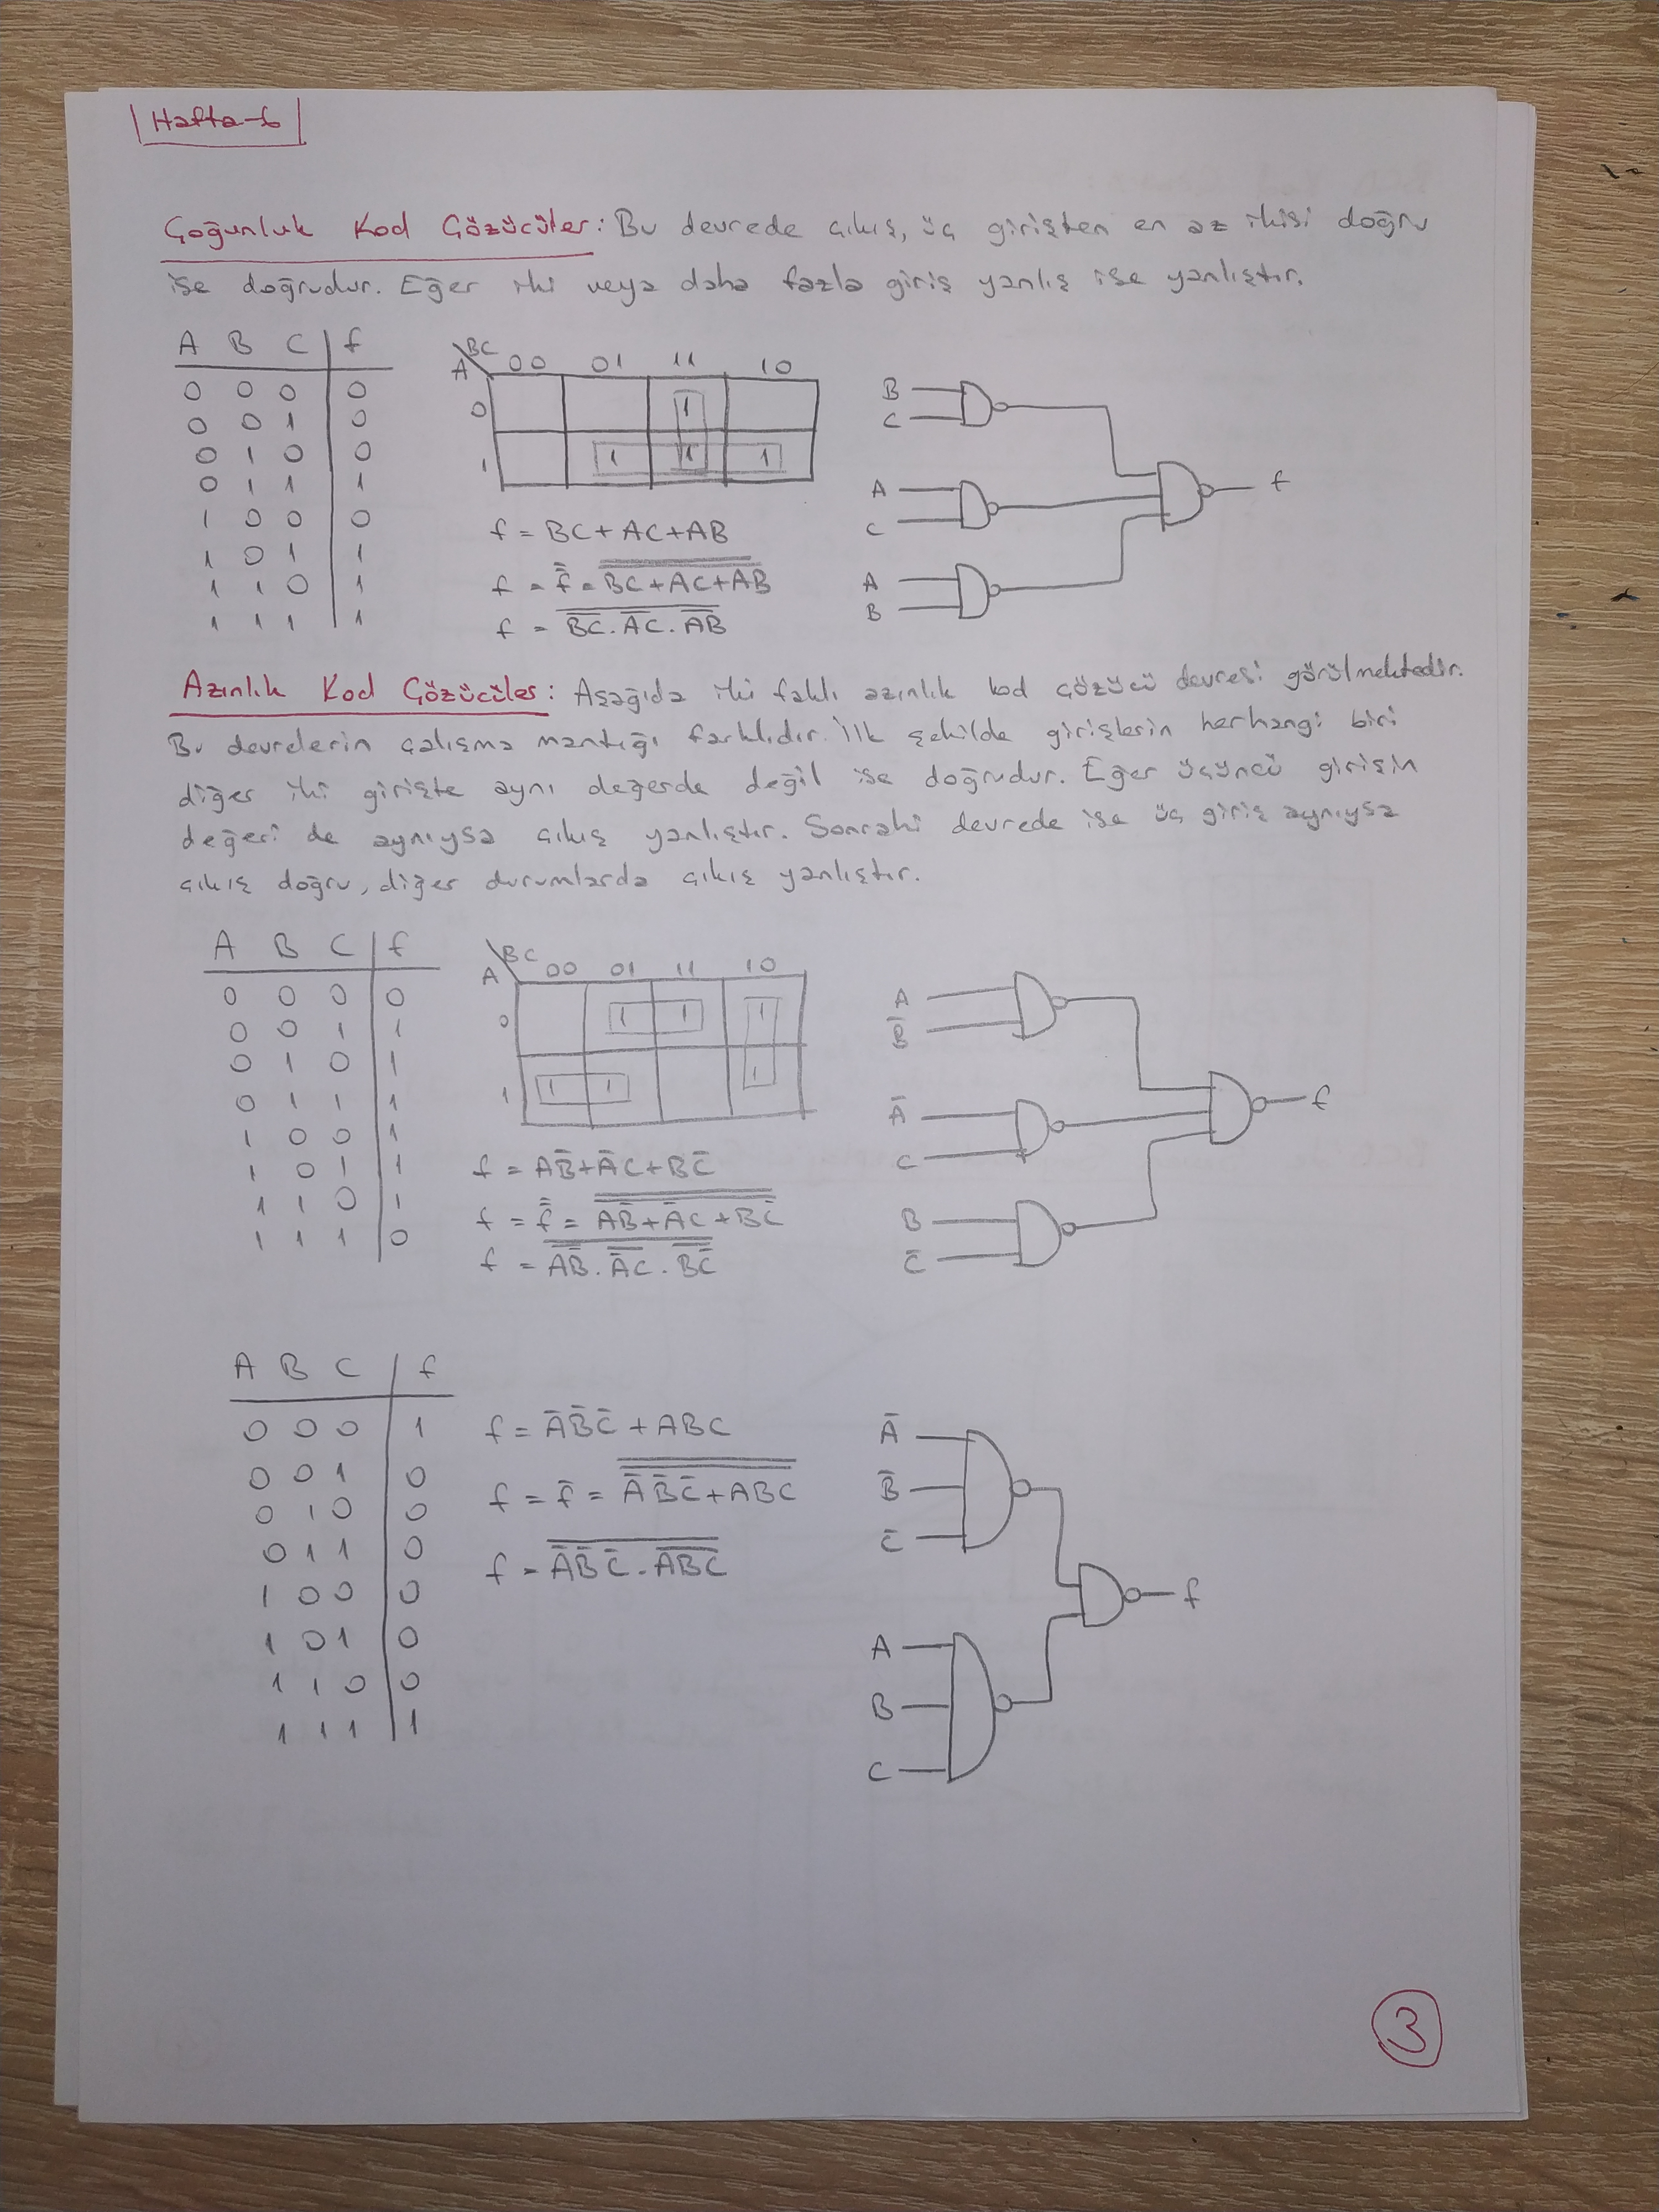 Hafta-6
Çoğunluk Kod Çözücüler: Bu devrede çıkış, üç girişten en az ikisi doğru
ise doğrudur. Eğer iki veya daha fazla giriş yanlış ise yanlıştır.
A B C f
0 0 0 0
0 0 1 0
0 1 0 0
0 1 1 1
1 0 0 0
1 0 1 1
1 1 0 1
1 1 1 1
A\BC 00 01 11 10
0 1
1 1 1 1
f = BC + AC + AB
f = f̿ = B̿C̿+̿A̿C̿+̿A̿B̿
f = B̅C̅ . A̅C̅ . A̅B̅
B
C
A
C
A
B
f
Azınlık Kod Çözücüler: Aşağıda iki farklı azınlık kod çözücü devresi görülmektedir.
Bu devrelerin çalışma mantığı farklıdır. İlk şekilde girişlerin herhangi biri
diğer iki girişte aynı değerde değil ise doğrudur. Eğer üçüncü girişin
değeri de aynıysa çıkış yanlıştır. Sonraki devrede ise üç giriş aynıysa
çıkış doğru, diğer durumlarda çıkış yanlıştır.
A B C f
0 0 0 0
0 0 1 1
0 1 0 1
0 1 1 1
1 0 0 1
1 0 1 1
1 1 0 1
1 1 1 0
A\BC 00 01 11 10
0 1 1 1
1 1 1 1
f = AB̅ + A̅C + BC̅
f = f̿ = A̿B̿̅+̿A̿̅C̿+̿B̿C̿̅
f = A̅B̿ . A̿C̅ . B̅C̿
A
B̅
A̅
C
B
C̅
f
A B C f
0 0 0 1
0 0 1 0
0 1 0 0
0 1 1 0
1 0 0 0
1 0 1 0
1 1 0 0
1 1 1 1
f = A̅B̅C̅ + ABC
f = f̿ = A̿̅B̿̅C̿̅+̿A̿B̿C̿
f = A̿B̿C̿ . A̅B̅C̅
A̅
B̅
C̅
A
B
C
f
3